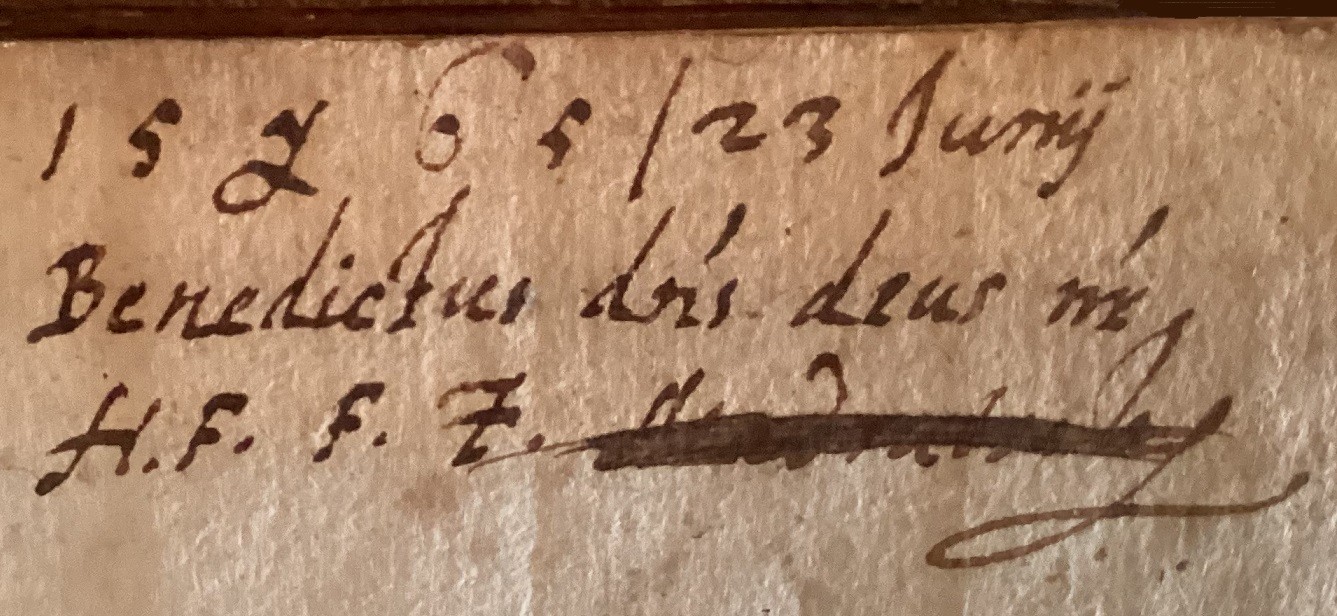 1 5 6 5 / 23 Junij
Benedictus dns deus
H. F. F. F.